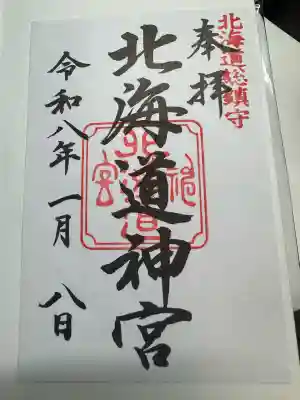 北海道総鎮守
奉拝
北海道神宮
北海道神宮
令和八年一月八日